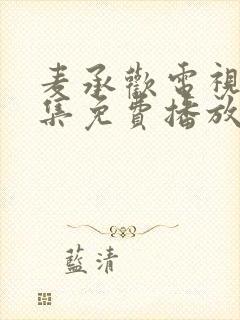 麦承歡電視
集免費播放
藍清